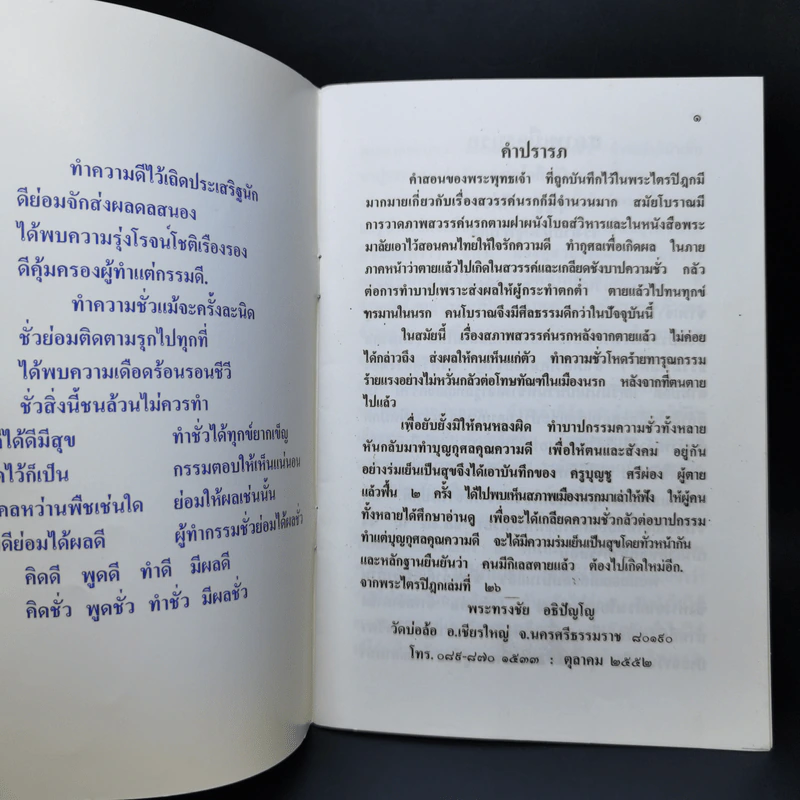 ทำความดีไว้เถิดประเสริฐนัก
ดีย่อมจักส่งผลดลสนอง
ได้พบความรุ่งโรจน์โชติเรืองรอง
ดีคุ้มครองผู้ทำแต่กรรมดี.
ทำความชั่วแม้จะครั้งละนิด
ชั่วย่อมติดตามรุกไปทุกที่
ได้พบความเดือดร้อนรอนชีวี
ชั่วสิ่งนี้ชนล้วนไม่ควรทำ
ได้ดีมีสุข ทำชั่วได้ทุกข์ยากเข็ญ
ไว้ก็เป็น กรรมตอบให้เห็นแน่นอน
หว่านพืชเช่นใด ย่อมให้ผลเช่นนั้น
ดีย่อมได้ผลดี ผู้ทำกรรมชั่วย่อมได้ผลชั่ว
คิดดี พูดดี ทำดี มีผลดี
คิดชั่ว พูดชั่ว ทำชั่ว มีผลชั่ว
๑
คำปรารภ
คำสอนของพระพุทธเจ้า ที่ถูกบันทึกไว้ในพระไตรปิฎกมี
มากมายเกี่ยวกับเรื่องสวรรค์นรกก็มีจำนวนมาก สมัยโบราณมี
การวาดภาพสวรรค์นรกตามฝาผนังโบสถ์วิหารและในหนังสือพระ
มาลัยเอาไว้สอนคนไทยให้ใจรักความดี ทำกุศลเพื่อเกิดผล ในภาย
ภาคหน้าว่าตายแล้วไปเกิดในสวรรค์และเกลียดชังบาปความชั่ว กลัว
ต่อการทำบาปเพราะส่งผลให้ผู้กระทำตกต่ำ ตายแล้วไปทนทุกข์
ทรมานในนรก คนโบราณจึงมีศีลธรรมดีกว่าในปัจจุบันนี้
ในสมัยนี้ เรื่องสภาพสวรรค์นรกหลังจากตายแล้ว ไม่ค่อย
ได้กล่าวถึง ส่งผลให้คนเห็นแก่ตัว ทำความชั่วโหดร้ายทารุณกรรม
ร้ายแรงอย่างไม่หวั่นกลัวต่อโทษทัณฑ์ในเมืองนรก หลังจากที่ตนตาย
ไปแล้ว
เพื่อยับยั้งมิให้คนหลงผิด ทำบาปกรรมความชั่วทั้งหลาย
หันกลับมาทำบุญกุศลคุณความดี เพื่อให้ตนและสังคม อยู่กัน
อย่างร่มเย็นเป็นสุขจึงได้เอาบันทึกของ ครูบุญชู ศรีผ่อง ผู้ตาย
แล้วฟื้น ๒ ครั้ง ได้ไปพบเห็นสภาพเมืองนรกมาเล่าให้ฟัง ให้ผู้คน
ทั้งหลายได้ศึกษาอ่านดู เพื่อจะได้เกลียดความชั่วกลัวต่อบาปกรรม
ทำแต่บุญกุศลคุณความดี จะได้มีความร่มเย็นเป็นสุขโดยทั่วหน้ากัน
และหลักฐานยืนยันว่า คนมีกิเลสตายแล้ว ต้องไปเกิดใหม่อีก.
จากพระไตรปิฎกเล่มที่ ๒๖
พระทรงชัย อธิปัญโญ
วัดบ่อล้อ อ.เชียรใหญ่ จ.นครศรีธรรมราช ๘๐๑๙๐
โทร. ๐๘๙-๘๗๐ ๑๕๓๓ : ตุลาคม ๒๕๕๒